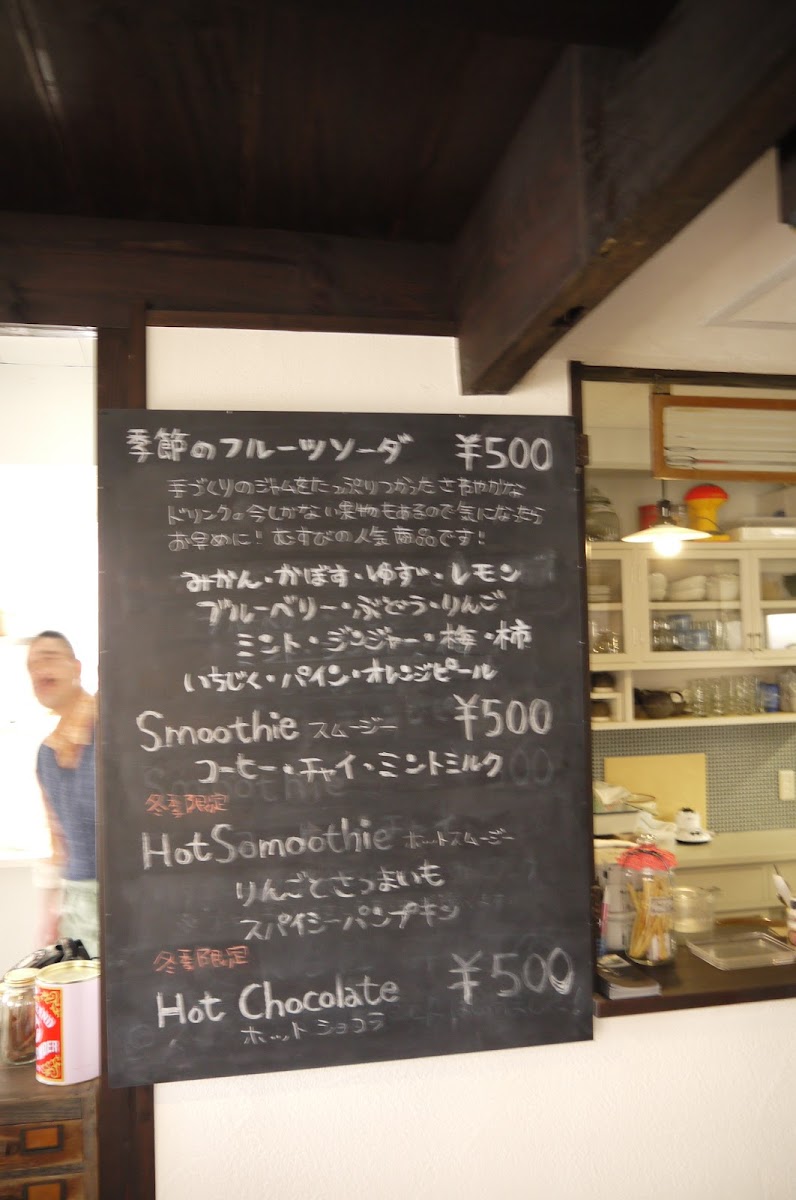 季節のフルーツソーダ ¥500
手づくりのジャムをたっぷりつかった さわやかな
ドリンク。今しかない果物もあるので気になったら
お早めに! むすびの人気商品です!
みかん・かぼす・ゆず・レモン
ブルーベリー・ぶどう・りんご
ミント・ジンジャー・梅・柿
いちじく・パイン・オレンジピール
Smoothie スムージー ¥500
コーヒー・チャイ・ミントミルク
冬季限定
Hot Somoothie ホットスムージー
りんごとさつまいも
スパイシーパンプキン
冬季限定
Hot Chocolate ¥500
ホットショコラ